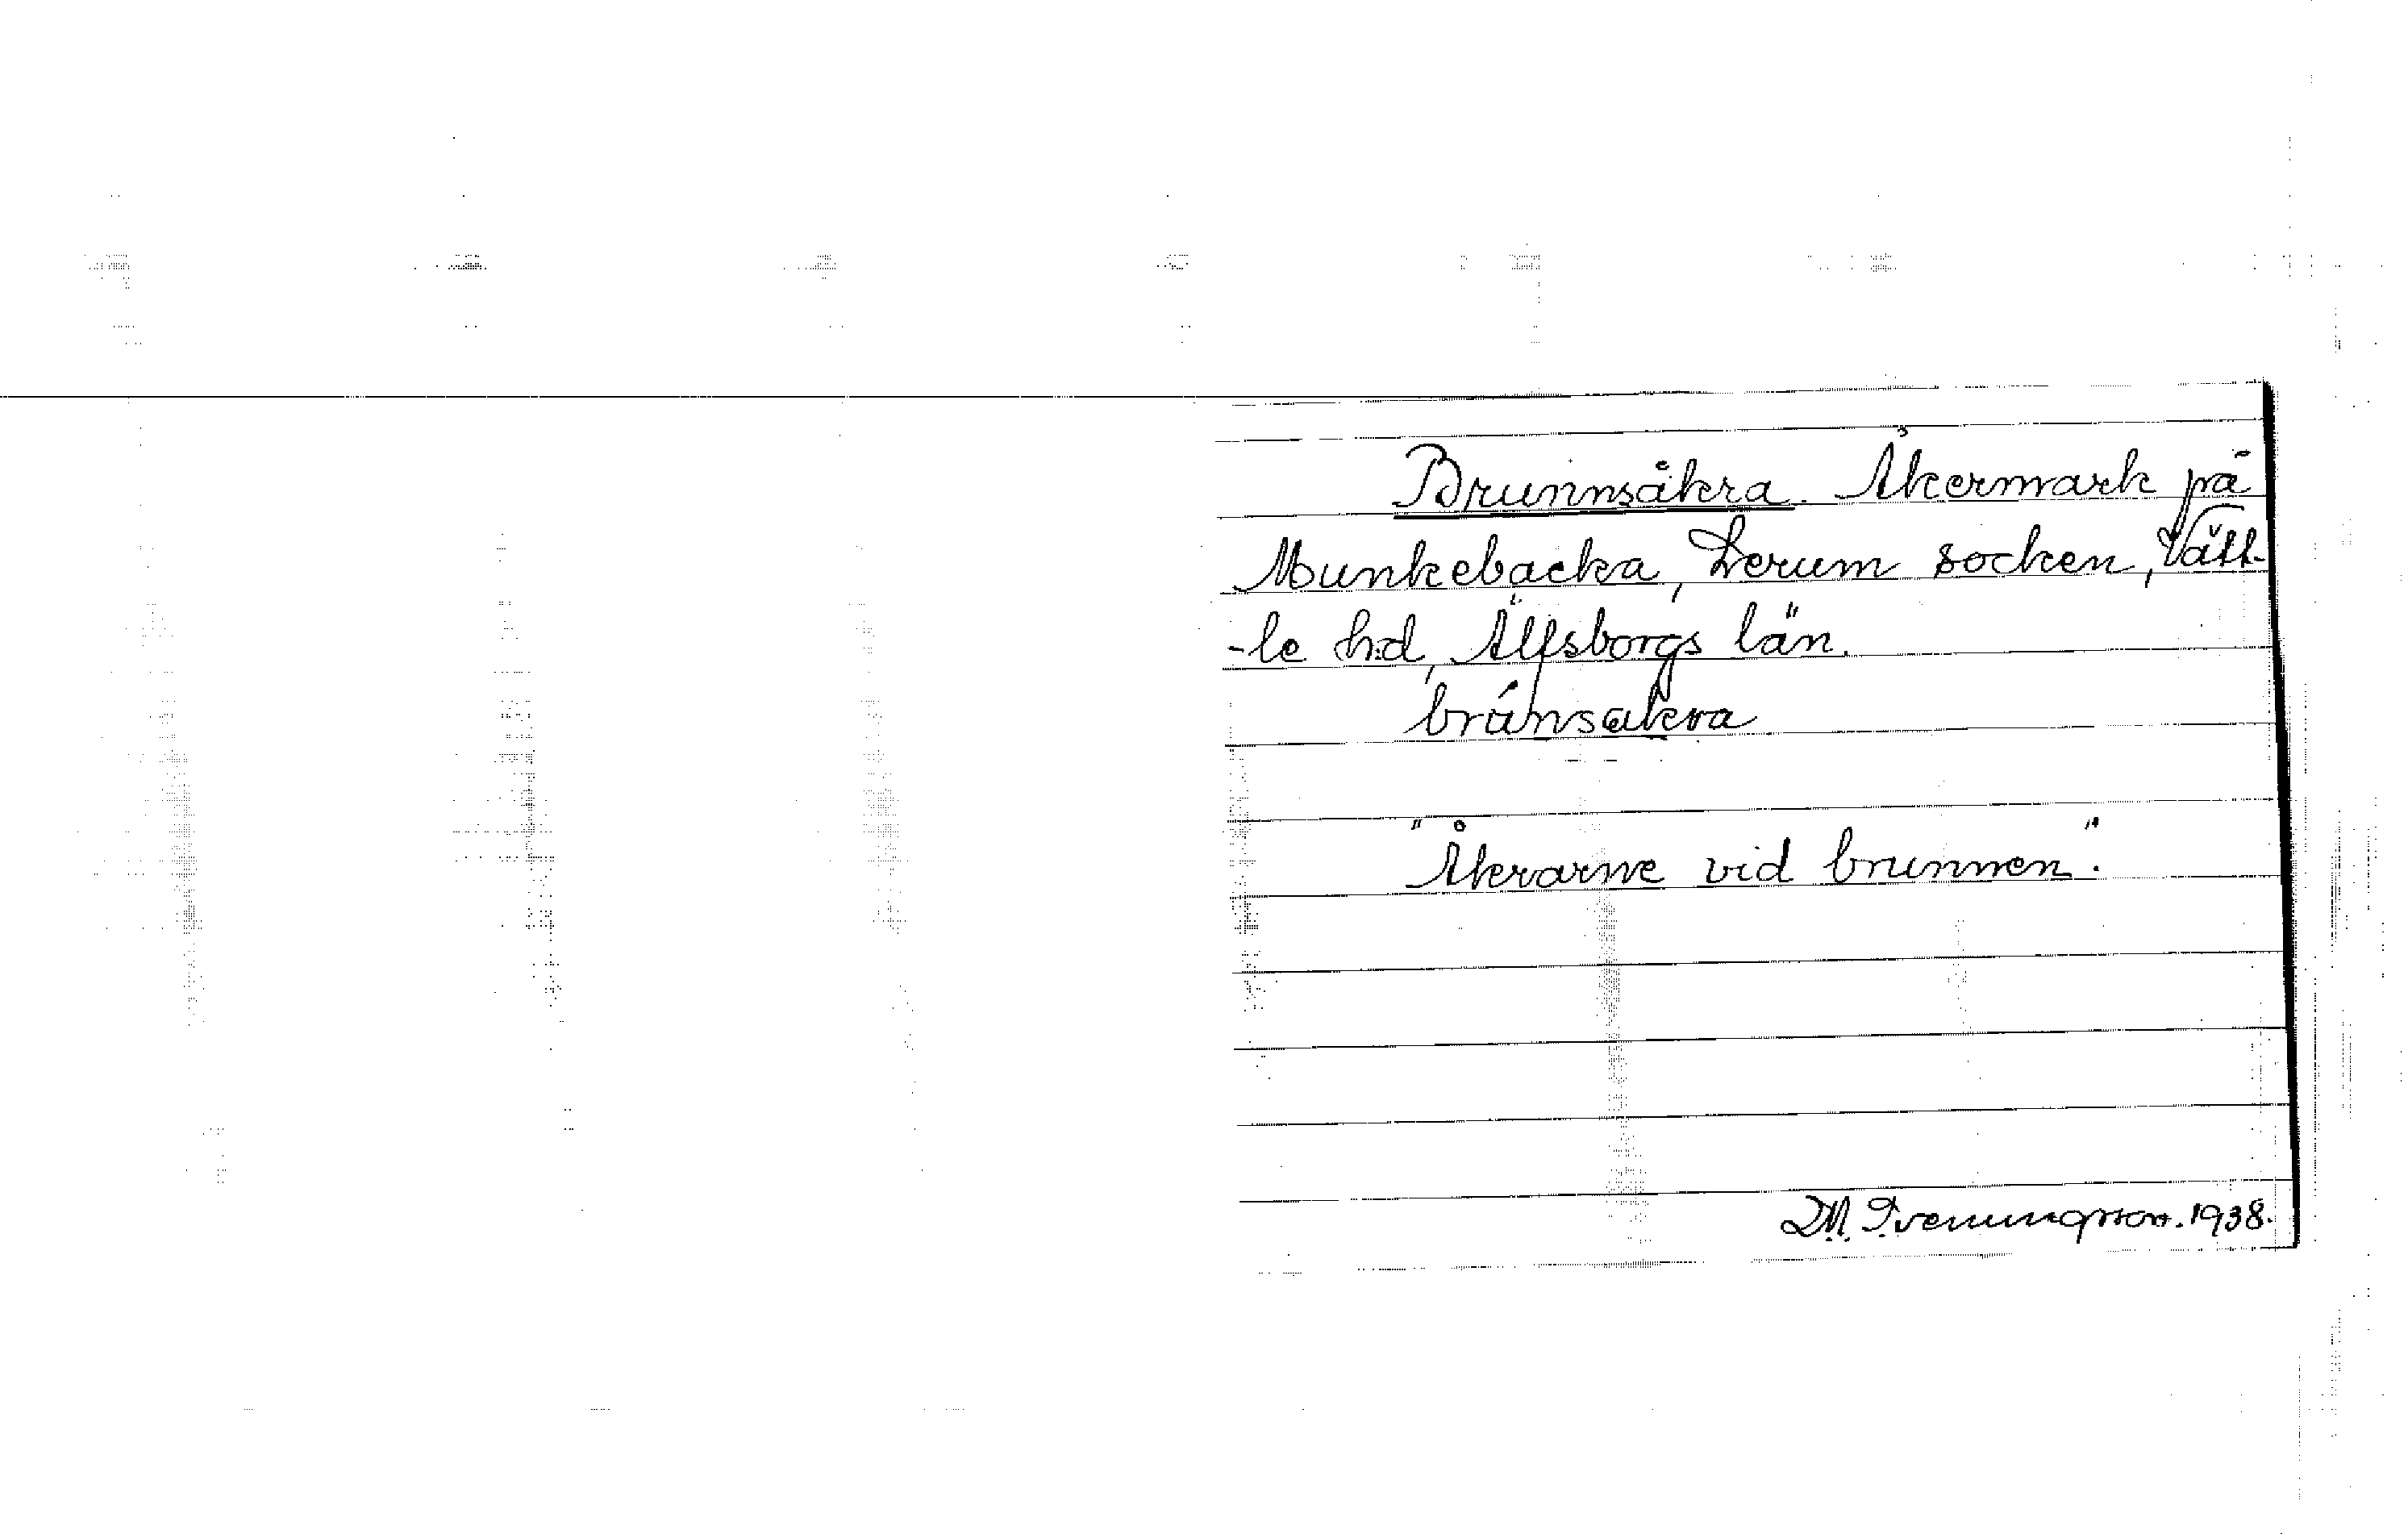 Brunnsåkra. Åkermark på
Munkebacka, Lerum socken, Vätt-
-le h:d, Älfsborgs län.
brúnsakra
"Åkrarne vid brunnen."
D.M. Svenungsson. 1938.